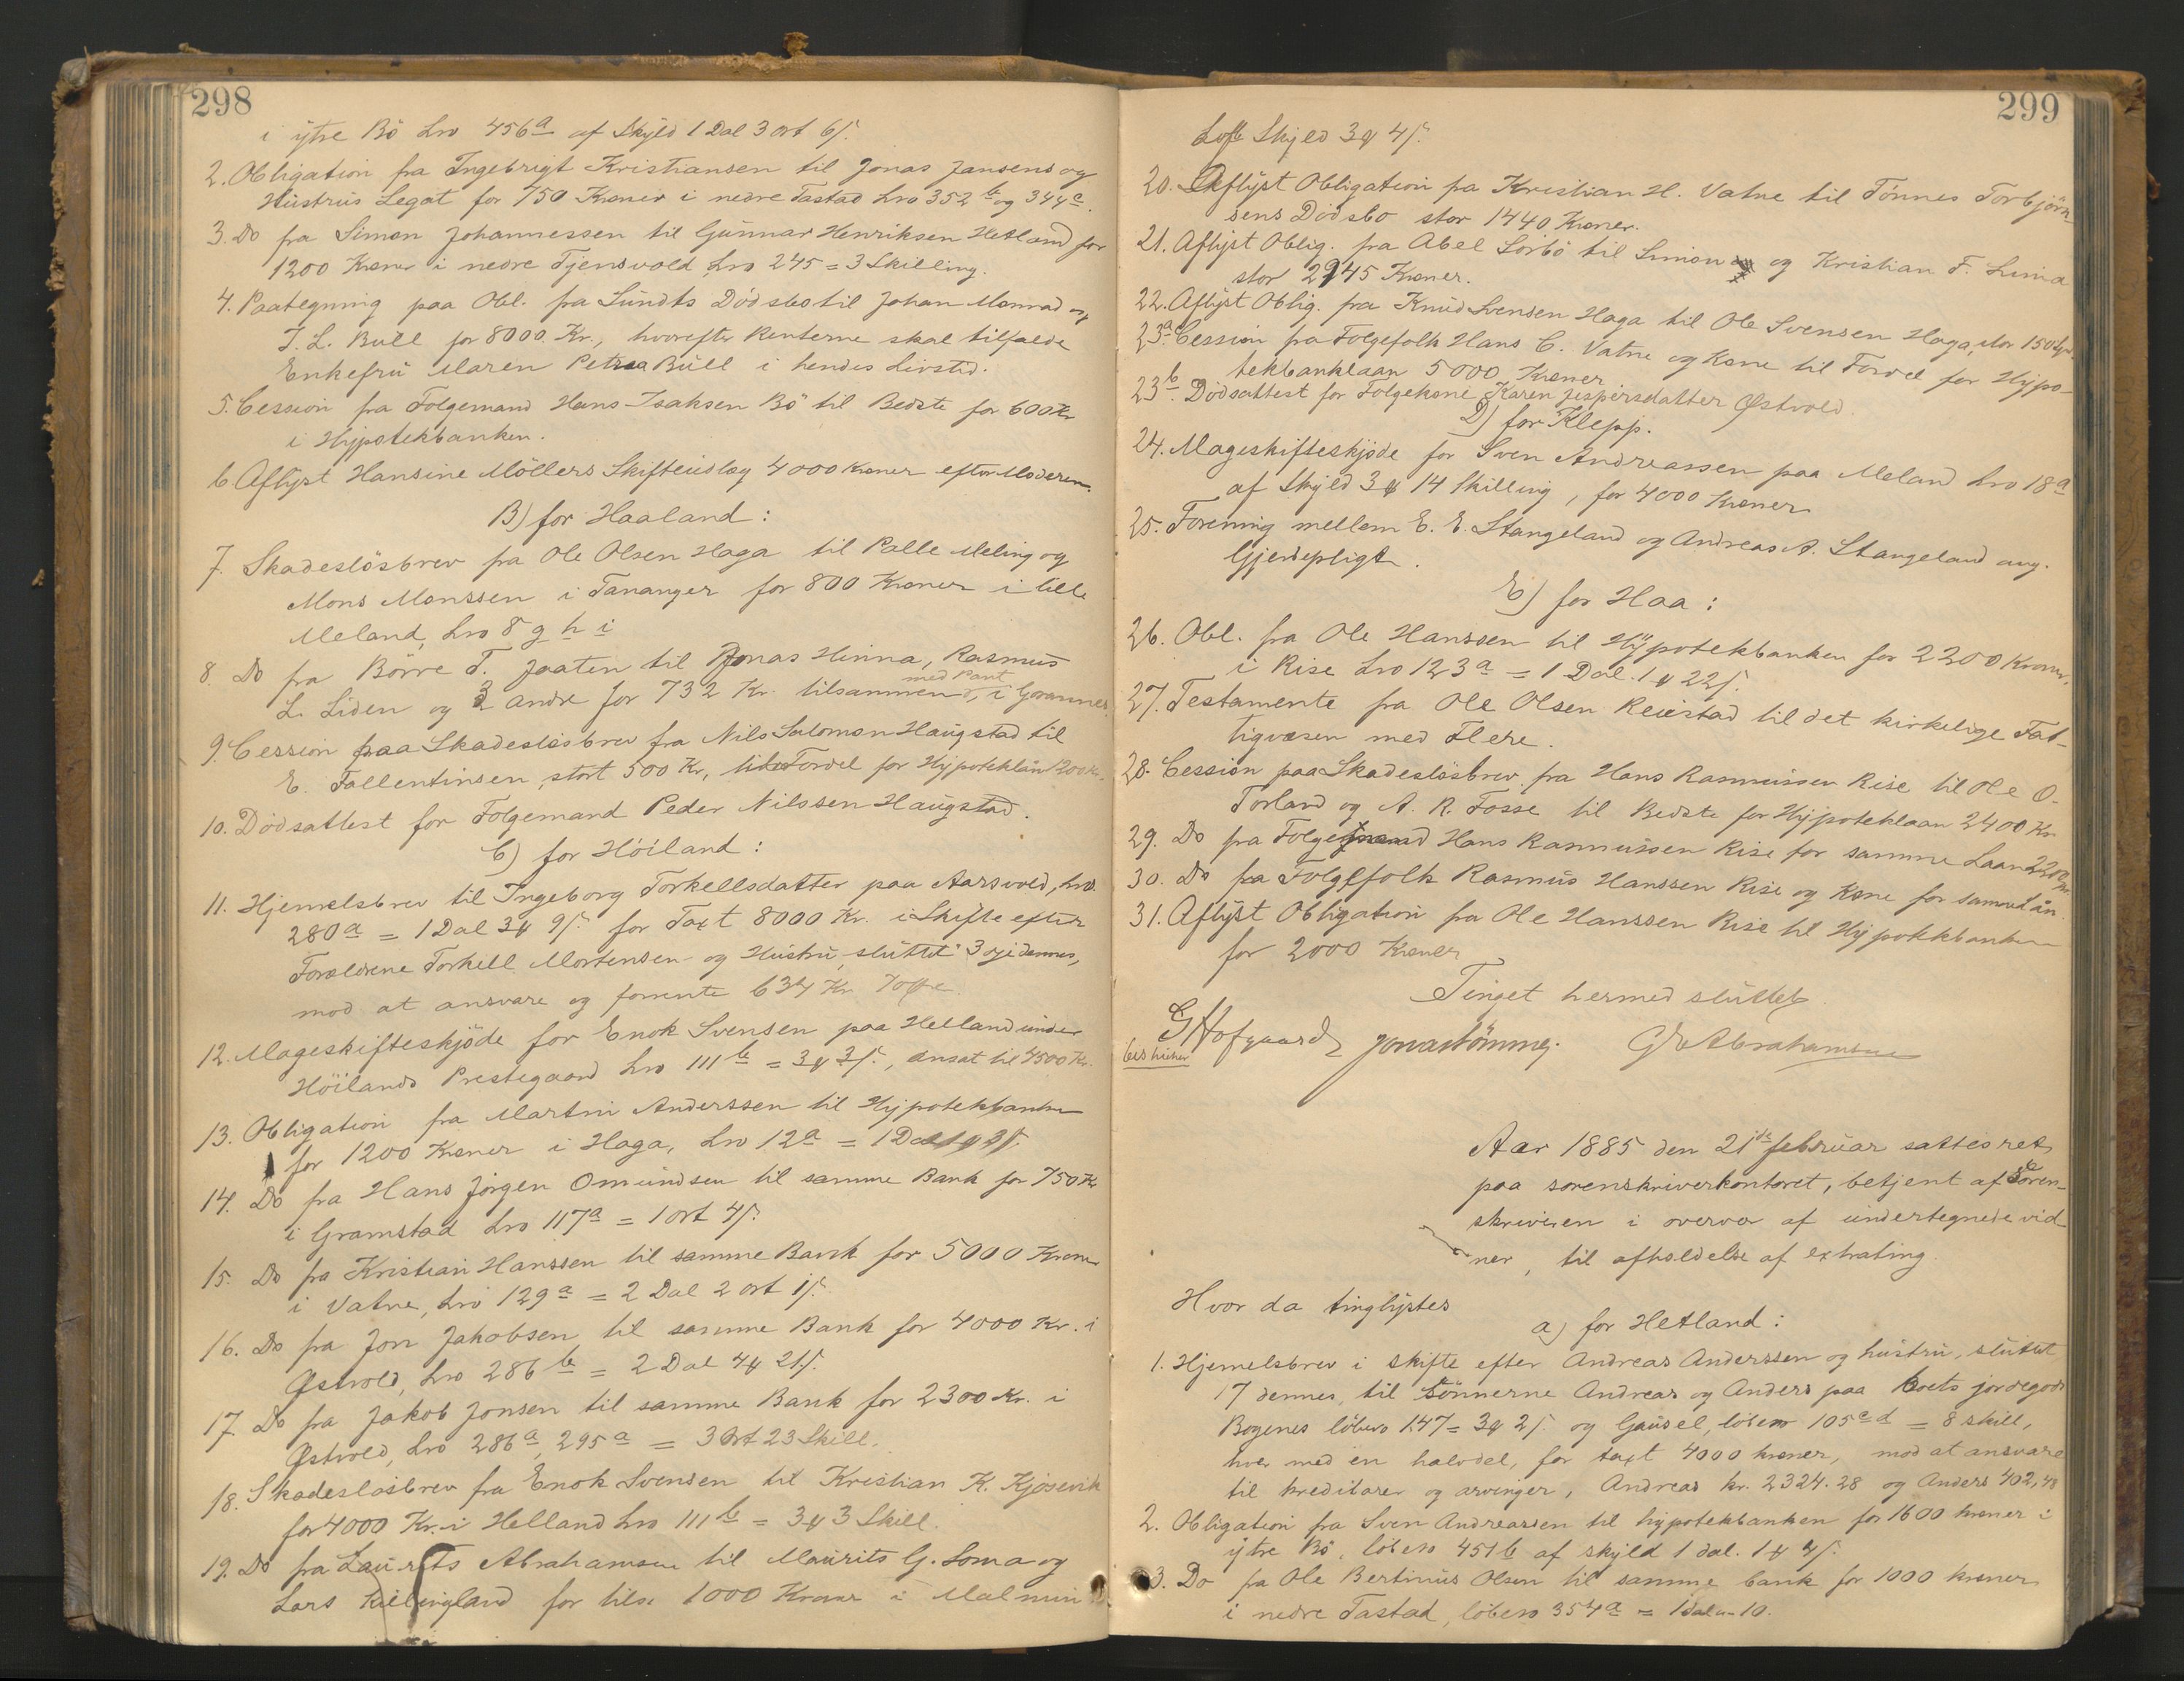 298
i ytre Bö Lno 456a af Skyld 1 Dal 3 Ort 6/.
2. Obligation fra Ingebrigt Kristiansen til Jonas Jansens og
Hustrus Legat for 750 Kroner i nedre Tastad Lno 352b og 344a.
3. Do fra Simon Johannessen til Gunnar Henriksen Hetland for
1200 Kroner i nedre Tjensvold Lno 245 = 3 Skilling.
4. Paategning paa Obl. fra Sundts Dödsbo til Johan Monrad og
J. L. Bull for 8000 Kr., hvorefter Renterne skal tilfalde
Enkefru Maren Petrea Bull i hendes Livstid.
5. Cession fra Folgemand Hans Isaksen Bö til Bedste for 600 Kr
i Hypotekbanken.
6. Aflyst Hansine Möllers Skifteudlæg 4000 Kroner efter Moderen.
B) for Haaland:
7. Skadeslösbrev fra Ole Olsen Haga til Palle Meling og
Mons Monssen i Tananger for 800 Kroner i lille
Meland, Lno 8 g h i
8. Do fra Börre T. Jaaten til Jonas Hinna, Rasmus
med Pant
L. Liden og 2 andre for 732 Kr. tilsammen, i Grannes.
9. Cession paa Skadeslösbrev fra Nils Salomon Haugstad til
E. Fallentinsen, stort 500 Kr, til Fordel for Hypoteklån 1200 Kr.
10. Dödsattest for Folgemand Peder Nilssen Haugstad.
C) for Höiland:
11. Hjemelsbrev til Ingeborg Torkellsdatter paa Aarsvold, Lno
280a = 1 Dal 3 ₰ 9/. for Taxt 8000 Kr. i Skifte efter
Forældrene Torkell Mortensen og Hustru, sluttet 3die dennes,
mod at ansvare og forrente 634 Kr. 70 Öre
12. Mageskifteskjöde for Enok Svensen paa Helland under
Höilands Prestegaard Lno 111b = 3 ₰ 3/., ansat til 4500 Kr.
13. Obligation fra Martin Anderssen til Hypotekbanken
for 1200 Kroner i Haga, Lno 12a = 1 Dal 1 ₰ 3/.
14. Do fra Hans Jörgen Omundsen til samme Bank for 750 Kr
i Gramstad Lno 117a = 1 Ort 4/.
15. Do fra Kristian Hanssen til samme Bank for 5000 Kroner
i Vatne, Lno 129a = 2 Dal 2 Ort 1/.
16. Do fra Jon Jakobsen til samme Bank for 4000 Kr. i
Østvold, Lno 286b = 2 Dal 4 ₰ 21/.
17. Do fra Jakob Jonsen til samme Bank for 2300 Kr. i
Østvold, Lno 286a, 295a = 3 Ort 23 Skill.
18. Skadeslösbrev fra Enok Svensen til Kristian K. Kjosevik
for 4000 Kr. i Helland Lno 111b = 3 ₰ 3 Skill.
19. Do fra Laurits Abrahamsen til Maurits G. Soma og
Lars Kellingland for tils. 1000 Kroner i Malmin
299
Loft Skyld 3 ₰ 4/.
20. Aflyst Obligation fra Kristian H. Vatne til Tönnes Torbjörn-
sens Dödsbo stor 1440 Kroner.
21. Aflyst Oblig. fra Abel Sörbö til Simon og Kristian F. Lima
stor 2945 Kroner.
22. Aflyst Oblig. fra Knud Svensen Haga til Ole Svensen Haga, stor 150
23a. Cession fra Folgefolk Hans C. Vatne og Kone til Fordel for Hypo-
tekbanklaan 5000 Kroner
23b. Dödsattest for Folgekone Karen Jespersdatter Østvold.
D) for Klepp.
24. Mageskifteskjöde for Sven Andreassen paa Meland Lno 18a
af Skyld 3 ₰ 14 Skilling, for 4000 Kroner
25. Forening mellem E. E. Stangeland og Andreas A. Stangeland ang.
Gjerdepligt.
E) for Haa:
26. Obl. fra Ole Hanssen til Hypotekbanken for 2200 Kroner,
i Rise Lno 123a = 1 Dal. 1 ₰ 22/.
27. Testamente fra Ole Olsen Reiestad til det kirkelige Fat-
tigvæsen med Flere.
28. Cession paa Skadeslösbrev fra Hans Rasmussen Rise til Ole O.
Torland og A. R. Fosse til Bedste for Hypoteklaan 2400 Kr
29. Do fra Folgemand Hans Rasmussen Rise for samme Laan 2200 Kr
30. Do fra Folgefolk Rasmus Hanssen Rise og Kone for samme Lån.
31. Aflyst Obligation fra Ole Hanssen Rise til Hypotekbanken
for 2000 Kroner
Tinget hermed sluttet
G Hofgaard Jonas Tömmer. G E Abrahamsen
Aar 1885 den 21de februar sattes ret
paa sorenskriverkontoret, betjent af Soren-
skriveren i overvær af undertegnede vid-
ner, til afholdelse af extrating.
Hvor da tinglystes
a) for Hetland:
1. Hjemelsbrev i skifte efter Andreas Anderssen og hustru, sluttet
17 dennes, til sönnerne Andreas og Anders paa boets jordegods
Bogenes löbeno 147 = 3 ₰ 2/. og Gausel, löbeno 105 c d = 8 skill,
hver med en halvdel, for taxt 4000 kroner, mod at ansvare
til kreditorer og arvinger, Andreas kr. 2324.28 og Anders 402,48
2. Obligation fra Sven Andreassen til hypotekbanken for 1600 kroner i
ytre Bö, löbeno 451b af skyld 1 dal. 1 ₰ 4/.
3. Do fra Ole Bertinius Olsen til samme bank for 1000 kroner
i nedre Tastad, löbeno 354a = 1 dal - 10.